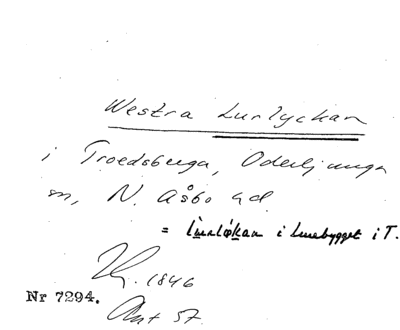 Westra Lurlyckan
i Troedsberga, Oderljunga
sn, N. Åsbo hd
= lùrlø̀kan i Lurebygget i T.
1846
Nr 7294.
Akt 57.